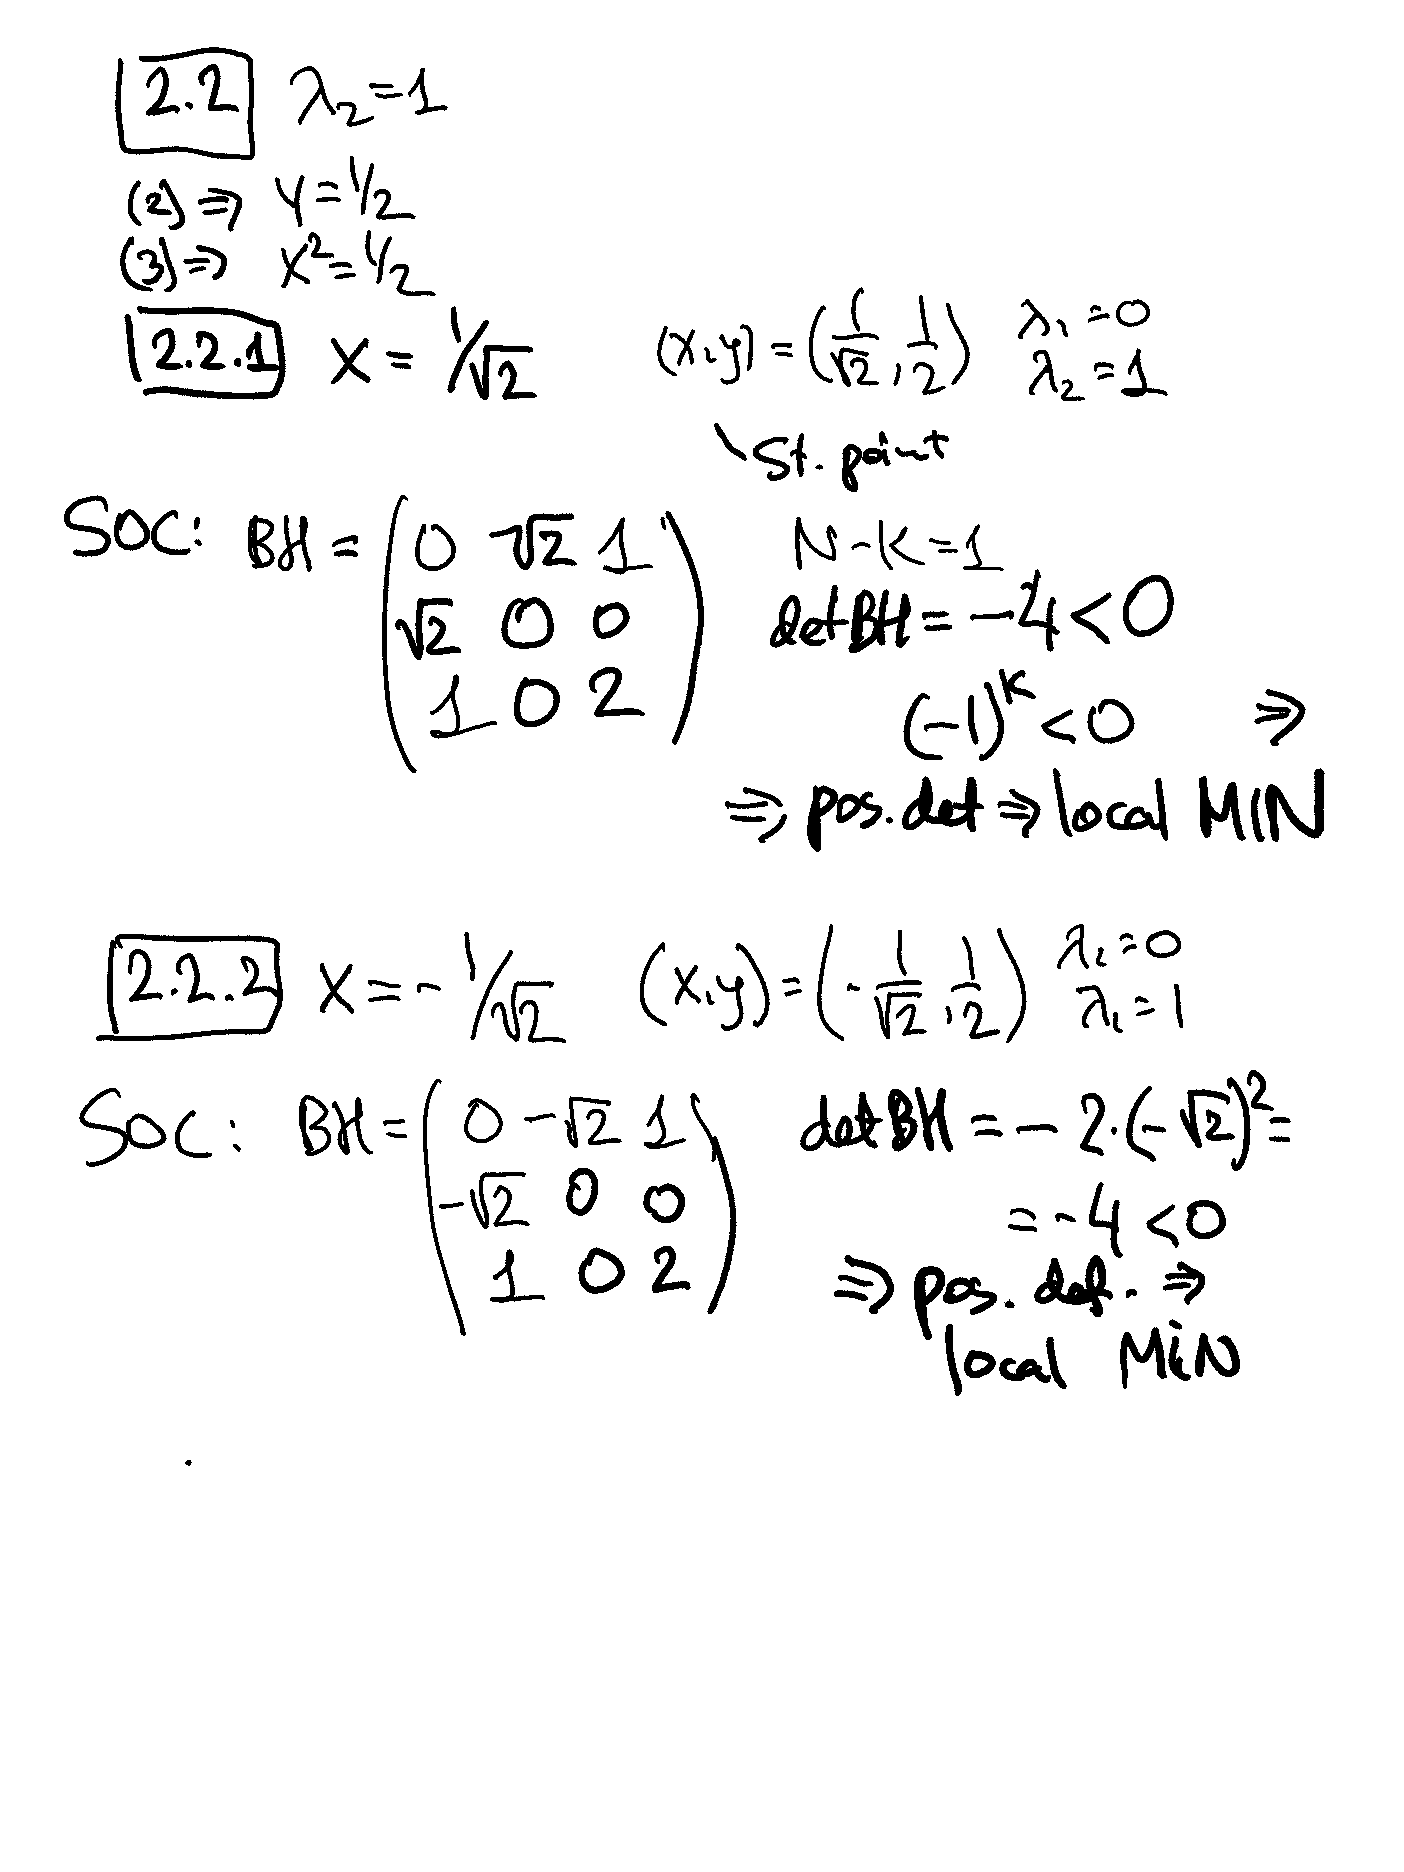 2.2 λ₂=1
(2) ⇒ y=1/2
(3) ⇒ x²=1/2
2.2.1 x = 1/√2 (x,y) = (1/√2, 1/2) λ₁=0
λ₂=1
St. point
SOC: BH = (0 √2 1 N-K=1
√2 0 0 detBH = -4<0
1 0 2) (-1)ᴷ<0 ⇒
⇒ pos. def ⇒ local MIN
2.2.2 x = -1/√2 (x,y) = (-1/√2, 1/2) λ₁=0
λ₁=1
SOC: BH = (0 -√2 1 detBH = -2·(-√2)²=
-√2 0 0 =-4<0
1 0 2) ⇒ pos. def. ⇒
local MIN